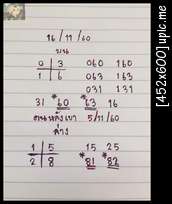 16/11/60
บน
0 3 060 160
1 6 063 163
031 131
31 *60 *63 16
คนหลังเขา 5/11/60
ล่าง
1 5 15 25
2 8 *81 *82
[452x600] upic.me